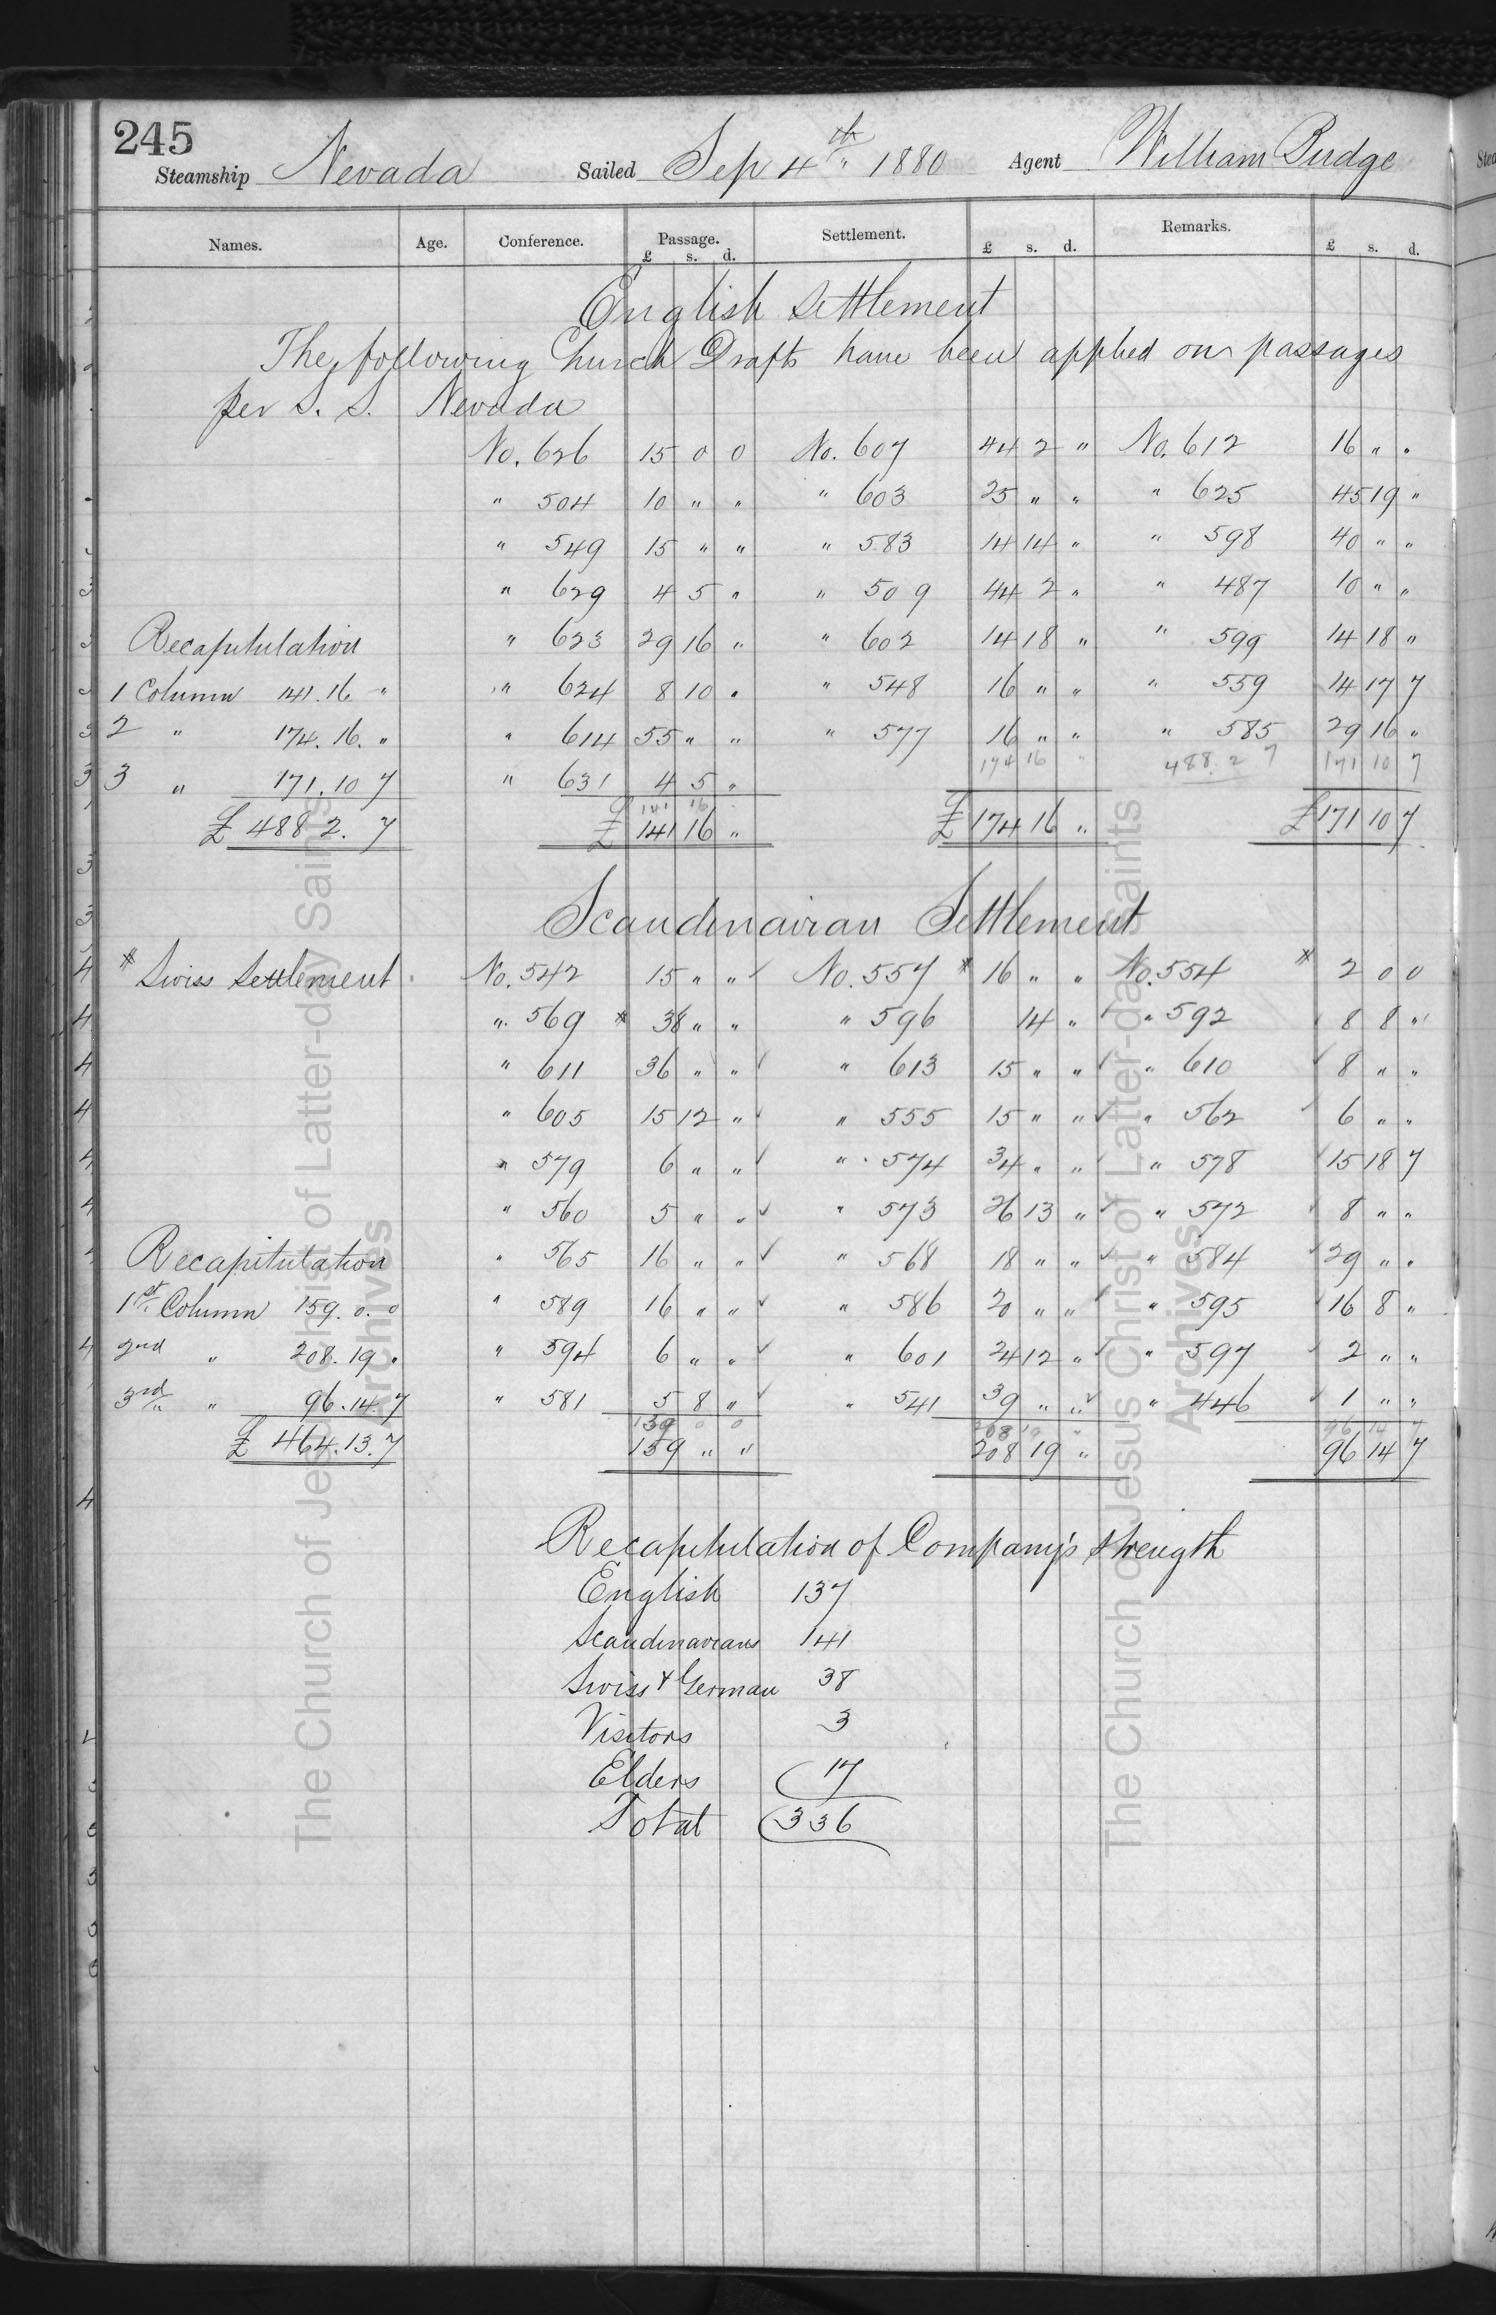 245
Steamship Nevada Sailed Sep 4th " 1880 Agent William Budge
Names. Age. Conference. Passage. Settlement. Remarks.
£ s. d. £ s. d. £ s. d.
English Settlement
The following Church Drafts have been applied on passages
per S. S. Nevada
No. 626 15 0 0 No. 607 44 2 " No. 612 16 " "
" 504 10 " " " 603 25 " " " 625 45 19 "
" 549 15 " " " 583 14 14 " " 598 40 " "
" 629 4 5 " " 509 44 2 " " 487 10 " "
Recapitulation " 623 29 16 " " 602 14 18 " " 599 14 18 "
1 Column 141. 16 " " 624 8 10 " " 548 16 " " " 559 14 17 7
2 " 174. 16. " " 614 55 " " " 577 16 " " " 585 29 16 "
174 16 " 488. 2 7 171 10 7
3 " 171. 10 7 " 631 4 5 "
141 16
£ 488 2. 7 £ 141 16 " £ 174 16 " £ 171 10 7
Scandinavian Settlement
* Swiss Settlement. No. 542 15 " " ✓ No. 557 * 16 " " No. 554 * 2 0 0
" 569 * 38 " " " 596 14 " ✓ " 592 ✓ 8 8 "
" 611 36 " " ✓ " 613 15 " " ✓ " 610 ✓ 8 " "
" 605 15 12 " ✓ " 555 15 " " ✓ " 562 ✓ 6 " "
" 579 6 " " ✓ " 574 34 " " ✓ " 578 ✓ 15 18 7
" 560 5 " " ✓ " 573 26 13 " ✓ " 572 ✓ 8 " "
Recapitulation " 565 16 " " ✓ " 568 18 " " ✓ " 584 ✓ 29 " "
1st Column 159. 0. 0 " 589 16 " " ✓ " 586 20 " " ✓ " 595 ✓ 16 8 "
2nd " 208. 19 " " 594 6 " " ✓ " 601 24 12 " ✓ " 597 ✓ 2 " "
3rd " 96. 14. 7 " 581 5 8 " ✓ " 541 39 " " ✓ " 446 ✓ 1 " "
159 0 0 208 19 " 96 14 7
£ 464. 13. 7 159 " " 208 19 " 96 14 7
Recapitulation of Company's strength
English 137
Scandinavians 141
Swiss & German 38
Visitors 3
Elders 17
Total 336
The Church of Jesus Christ of Latter-day Saints
Archives
The Church of Jesus Christ of Latter-day Saints
Archives